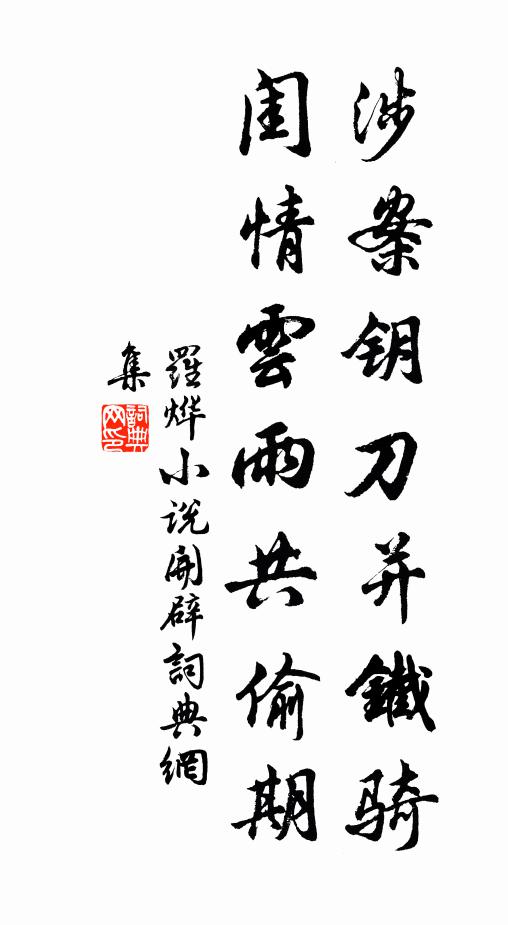 涉案钥刀并鐵骑
闺情雲雨共偷期
羅烨小说開辟詞典網
集
詞典
网印